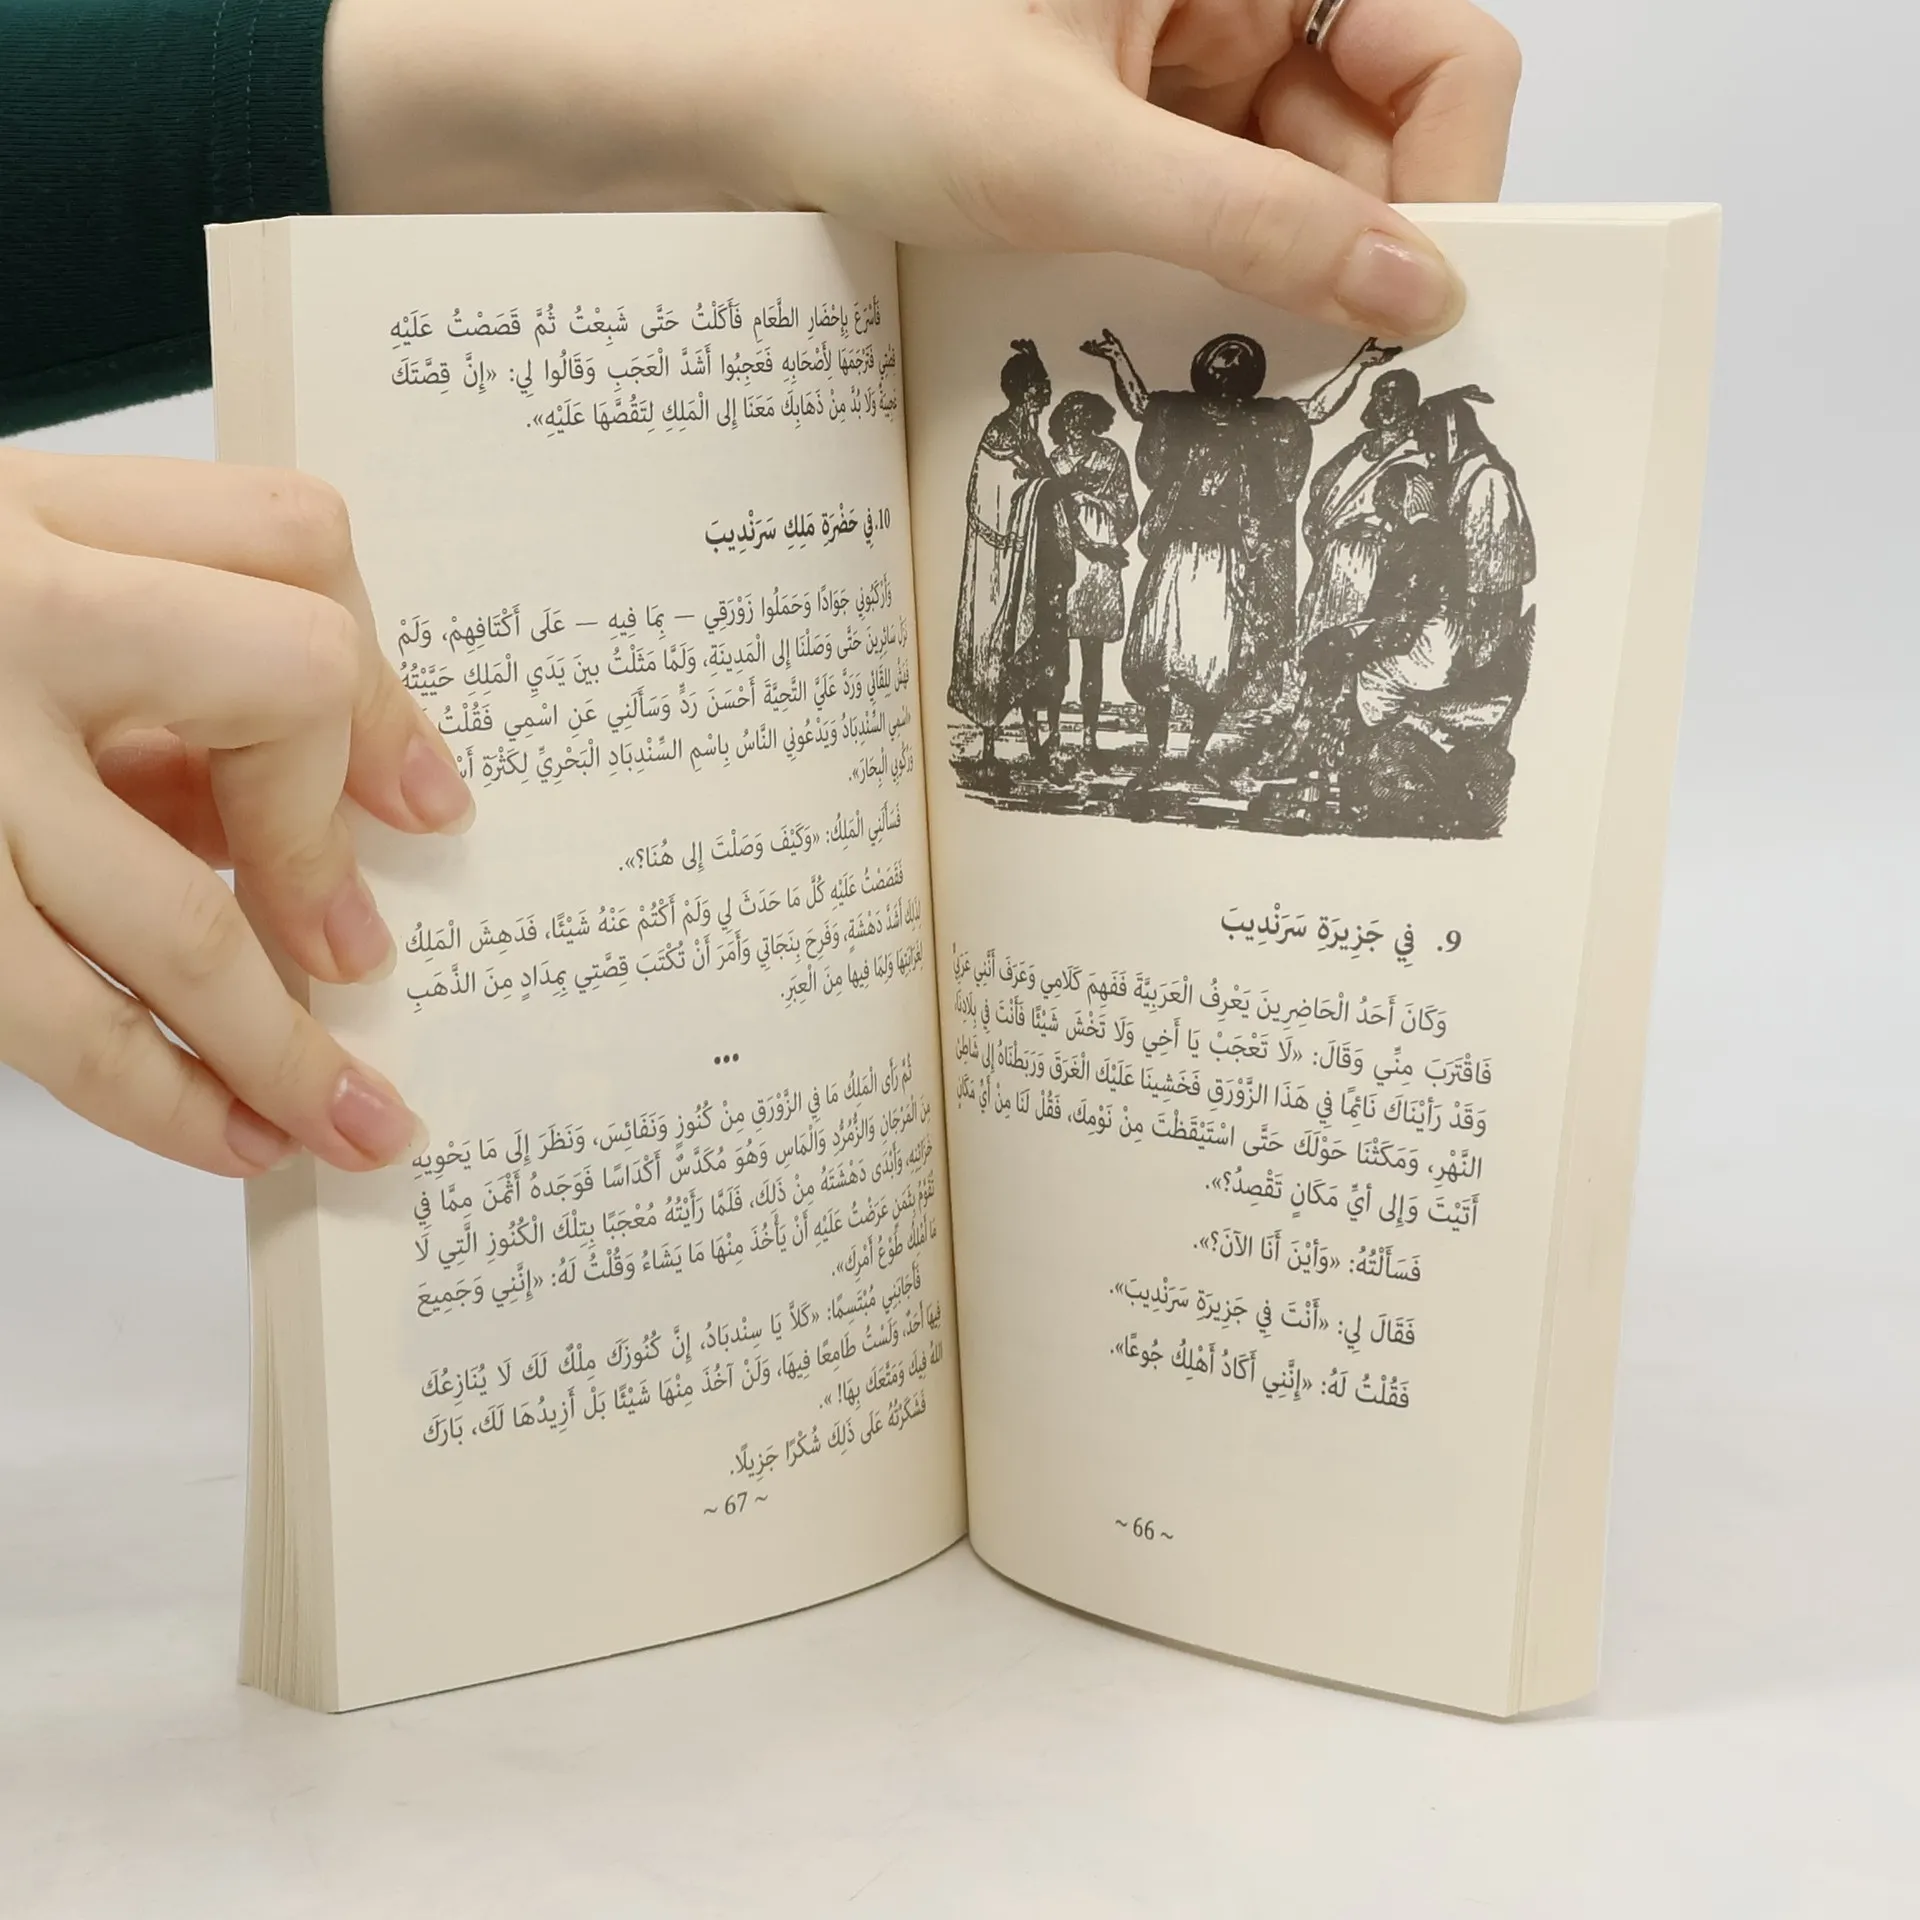 9. فِي جَزِيرَةِ سَرَنْدِيبَ
وَكَانَ أَحَدُ الْحَاضِرِينَ يَعْرِفُ الْعَرَبِيَّةَ فَفَهِمَ كَلَامِي وَعَرَفَ أَنَّنِي عَرَبِيٌّ
فَاقْتَرَبَ مِنِّي وَقَالَ: «لَا تَعْجَبْ يَا أَخِي وَلَا تَخْشَ شَيْئًا فَأَنْتَ فِي بِلَادِنَا،
وَقَدْ رَأَيْنَاكَ نَائِمًا فِي هَذَا الزَّوْرَقِ فَخَشِينَا عَلَيْكَ الْغَرَقَ وَرَبَطْنَاهُ إِلى شَاطِئِ
النَّهْرِ، وَمَكَثْنَا حَوْلَكَ حَتَّى اسْتَيْقَظْتَ مِنْ نَوْمِكَ، فَقُلْ لَنَا مِنْ أَيِّ مَكَانٍ
أَتَيْتَ وَإِلى أيِّ مَكَانٍ تَقْصِدُ؟».
فَسَأَلْتُهُ: «وَأيْنَ أَنَا الآنَ؟».
فَقَالَ لِي: «أَنْتَ فِي جَزِيرَةِ سَرَنْدِيبَ».
فَقُلْتُ لَهُ: «إِنَّنِي أَكَادُ أَهْلِكُ جُوعًا».
~ 66 ~
فَأَسْرَعَ بِإِحْضَارِ الطَّعَامِ فَأَكَلْتُ حَتَّى شَبِعْتُ ثُمَّ قَصَصْتُ عَلَيْهِ
قِصَّتِي فَتَرْجَمَهَا لِأَصْحَابِهِ فَعَجِبُوا أَشَدَّ الْعَجَبِ وَقَالُوا لِي: «إِنَّ قِصَّتَكَ
عَجِيبَةٌ وَلَا بُدَّ مِنْ ذَهَابِكَ مَعَنَا إِلى الْمَلِكِ لِتَقُصَّهَا عَلَيْهِ».
10. فِي حَضْرَةِ مَلِكِ سَرَنْدِيبَ
وَأَرْكَبُونِي جَوَادًا وَحَمَلُوا زَوْرَقِي — بِمَا فِيهِ — عَلَى أَكْتَافِهِمْ، وَلَمْ
نَزَلْ سَائِرِينَ حَتَّى وَصَلْنَا إِلى الْمَدِينَةِ، وَلَمَّا مَثَلْتُ بينَ يَدَيِ الْمَلِكِ حَيَّيْتُهُ
فَنَهَضَ لِلِقَائِي وَرَدَّ عَلَيَّ التَّحِيَّةَ أَحْسَنَ رَدٍّ وَسَأَلَنِي عَنِ اسْمِي فَقُلْتُ
«اسْمِي السِّنْدِبَادُ وَيَدْعُونِي النَّاسُ بِاسْمِ السِّنْدِبَادِ الْبَحْرِيِّ لِكَثْرَةِ
وَرُكُوبِي الْبِحَارَ».
فَسَأَلَنِي الْمَلِكُ: «وَكَيْفَ وَصَلْتَ إِلى هُنَا؟».
فَقَصَصْتُ عَلَيْهِ كُلَّ مَا حَدَثَ لِي وَلَمْ أَكْتُمْ عَنْهُ شَيْئًا، فَدَهِشَ الْمَلِكُ
لِذَلِكَ أَشَدَّ دَهْشَةٍ، وَفَرِحَ بِنَجَاتِي وَأَمَرَ أَنْ تُكْتَبَ قِصَّتِي بِمِدَادٍ مِنَ الذَّهَبِ
لِغَرَابَتِهَا وَلِمَا فِيهَا مِنَ الْعِبَرِ.
•••
ثُمَّ رَأَى الْمَلِكُ مَا فِي الزَّوْرَقِ مِنْ كُنُوزٍ وَنَفَائِسَ، وَنَظَرَ إِلَى مَا يَحْوِيهِ
مِنَ الْمَرْجَانِ وَالزُّمُرُّدِ وَالْمَاسِ وَهُوَ مُكَدَّسٌ أَكْدَاسًا فَوَجَدهُ أَثْمَنَ مِمَّا فِي
خَزَائِنِهِ، وَأَبْدَى دَهْشَتَهُ مِنْ ذَلِكَ، فَلَمَّا رَأَيْتُهُ مُعْجَبًا بِتِلْكَ الْكُنُوزِ الَّتِي لَا
تُقَوَّمُ بِثَمَنٍ عَرَضْتُ عَلَيْهِ أَنْ يَأْخُذَ مِنْهَا مَا يَشَاءُ وَقُلْتُ لَهُ: «إِنَّنِي وَجَمِيعَ
مَا أَمْلِكُ طَوْعُ أَمْرِكَ».
فَأَجَابَنِي مُبْتَسِمًا: «كَلاَّ يَا سِنْدبَادُ، إِنَّ كُنُوزَكَ مِلْكٌ لَكَ لَا يُنَازِعُكَ
فِيهَا أَحَدٌ، وَلَسْتُ طَامِعًا فِيهَا، وَلَنْ آخُذَ مِنْهَا شَيْئًا بَلْ أَزِيدُهَا لَكَ، بَارَكَ
اللهُ فِيكَ وَمَتَّعَكَ بِهَا! ».
فَشَكَرْتُهُ عَلَى ذَلِكَ شُكْرًا جَزِيلًا.
~ 67 ~